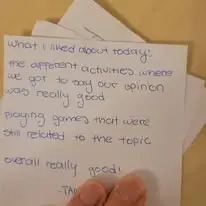 What I liked about today:
the different activities where
we got to say our opinion
was really good
playing games that were
still related to the topic
overall really good!